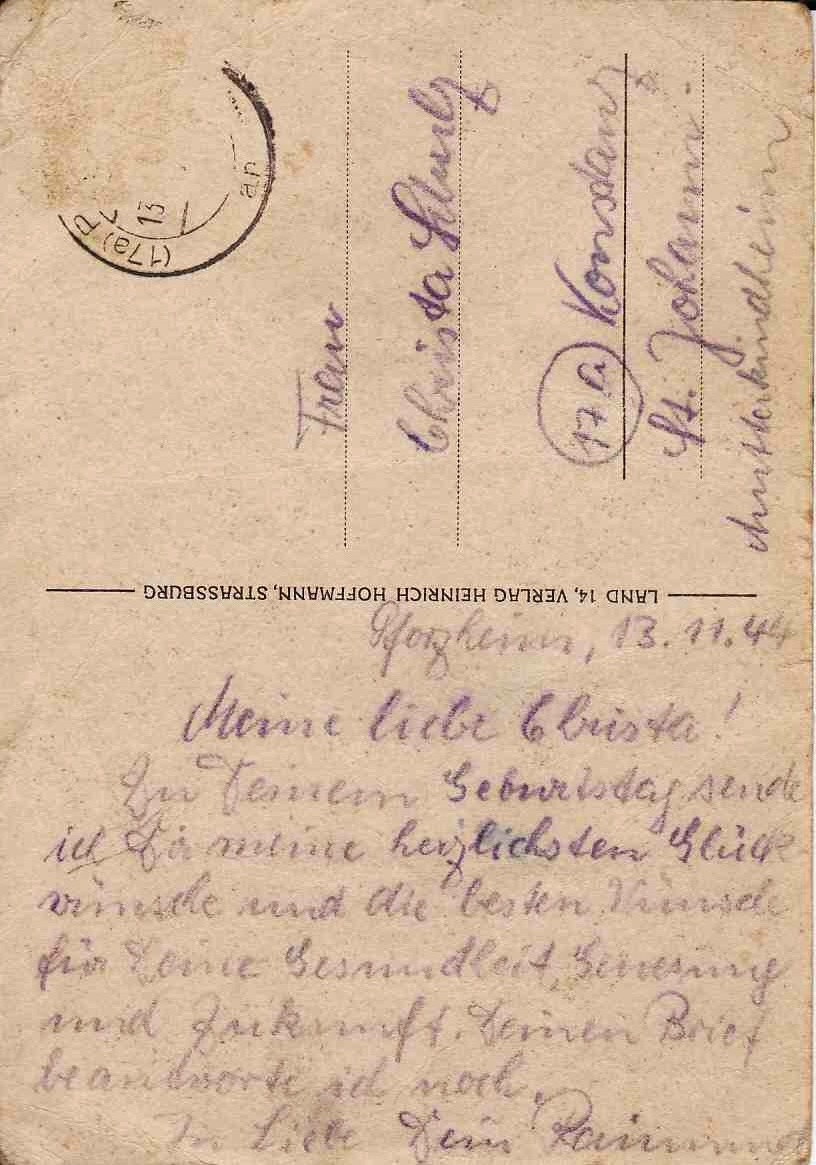 (17a) P
13
an
Frau
Christa Schulz
(17a) Konstanz
St. Johann
Mutterkindheim
LAND 14, VERLAG HEINRICH HOFFMANN, STRASSBURG
Pforzheim, 13.11.44
Meine liebe Christa!
Zu Deinem Geburtstag sende
ich Dir meine herzlichsten Glück-
wünsche und die besten Wünsche
für Deine Gesundheit, Genesung
und Zukunft. Deinen Brief
beantworte ich noch.
In Liebe Dein